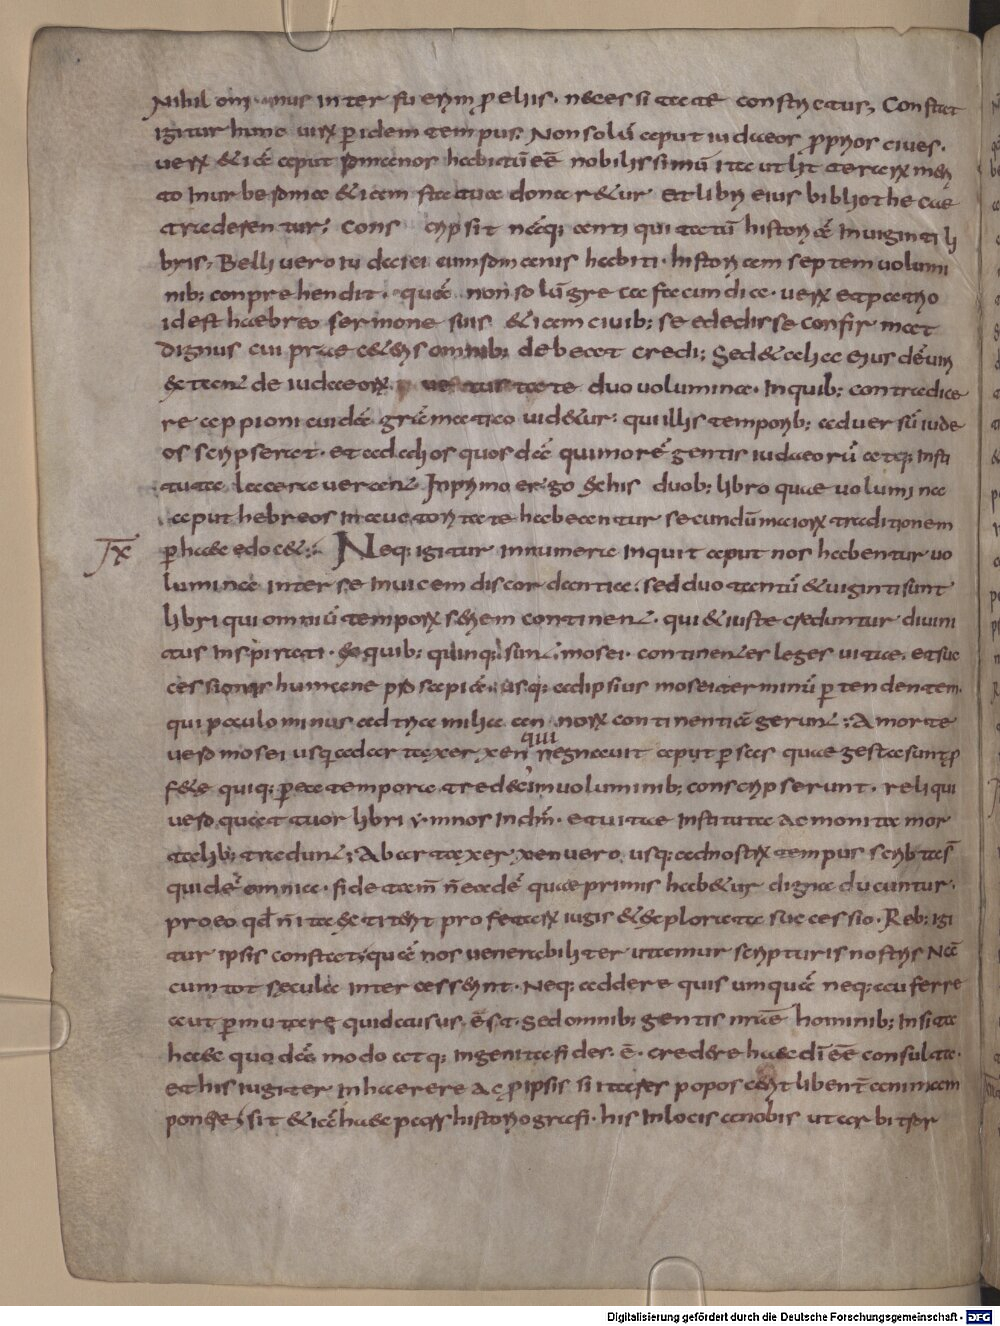 Nihil omi nus inter fuerim proeliis. necessitate constrictus; Constat
igitur hunc uirum per idem tempus. Non solum aput iudaeos proprios ciues.
uerum & iam aput romanos habitum ee nobilissimum ita ut lit terarum meri
to In urbe romae & iam statua donar&ur Et libri eius bibliothecae
traderentur; Cons cripsit namq; anti quitatum historiam In uiginti li
bris, Belli uero iudaici cum romanis habiti. historiam septem uolumi
nib; conprehendit. quam non solum grae ca facundia. uerum et patrio
id est haebreo sermone suis & iam ciuib; se ededisse confirmat
dignus cui prae ceteris omnib; debeat credi; Sed & alia eius denum
& tant de iudaeorum uetustate duo uolumina. In quib; contradice
re appioni cuidam grammatico uid&ur. qui illis temporib; aduersum iude
os scripserat. et ad alios quosdam qui morem gentis iudaeorum atq; Insti
tuta lacerauerant Inprimo ergo & his duob; libro quae uolumina
aput hebreos In auctoritate habeantur secundum maiorum traditionem
per haec edoc&;
FX Neq; igitur innumera inquit aput nos habentur uo
lumina inter se Inuicem discordantia. sed duo tantum & uiginti sunt
libri qui omnium temporum seriem continent. qui & iuste creduntur diuini
tus Inspirati. & quib; quinq; sunt mosei. continentes leges uitae. et suc
cessionis humane prosapiam. usq; ad ipsius mosei terminum pertendentem.
qui paulo minus ad tria milia annorum continentiam gerunt; A morte
uero mosei usq; ad artaxerxen qui regnauit aput persas quae gesta sunt pro
f&ae quiq; per ea tempora tredecim uoluminib; conscripserunt. reliqui
uero quattuor libri ymnos In dm. et uitae Instituta ac monita mor
talib; tradunt; Ab artaxerxen uero usq; ad nostrum tempus scribta st
quidem omnia. fide tam n eadem quae primis hab&ur digna ducuntur.
pro eo qd n ita & titerit profetarum iugis & &plorata successio. Reb; igi
tur ipsis constat; quam nos uenerabiliter utamur scripturis nostris Nam
cum tot saecula intercesserint. Neq; addere quis umquam neq; auferre
aut permutare quid ausus. est. Sed omnib; gentis nrae hominib; Insita
haec quodam modo atq; ingenita fides. e. credere haec di ee consulta.
et his iugiter Inhaerere ac pro ipsis si ita res poposcerit libent animam
ponere; sit & iam haec parum historiografi. his Inlocis a nobis utar biter
Digitalisierung gefördert durch die Deutsche Forschungsgemeinschaft - DFG